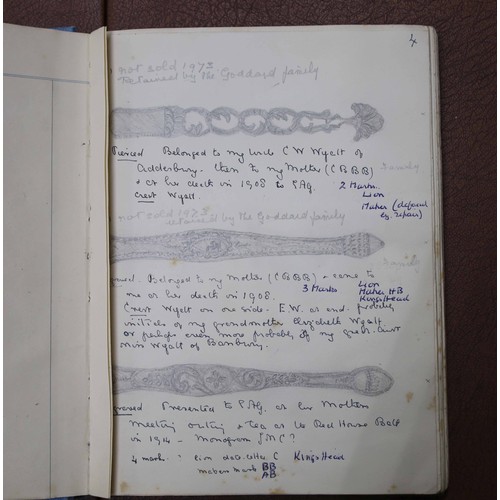 4
not sold 1973
Retained by the Goddard family
Pierced Belonged to my Uncle C W Wyatt of
Adderbury. then to my Mother (C B B B) family
+ at her death in 1908 to
Crest Wyatt.
2 Marks.
Lion
Maker (defaced
by repair)
not sold 1973
retained by the Goddard family
Belonged to my Mother (C B B B) + came to family
me at her death in 1908.
3 Marks
Lion
Maker HB
Kings Head
Crest Wyatt on one side. E.W. at end. probably
initials of my grandmother Elizabeth Wyatt
or perhaps even more probably of my great aunt
Miss Wyatt of Banbury.
Presented to at her Mothers
meeting outing + tea at the Red House
in 1914 - Monogram
4 marks: lion date letter C Kings Head
makers mark BB
AB